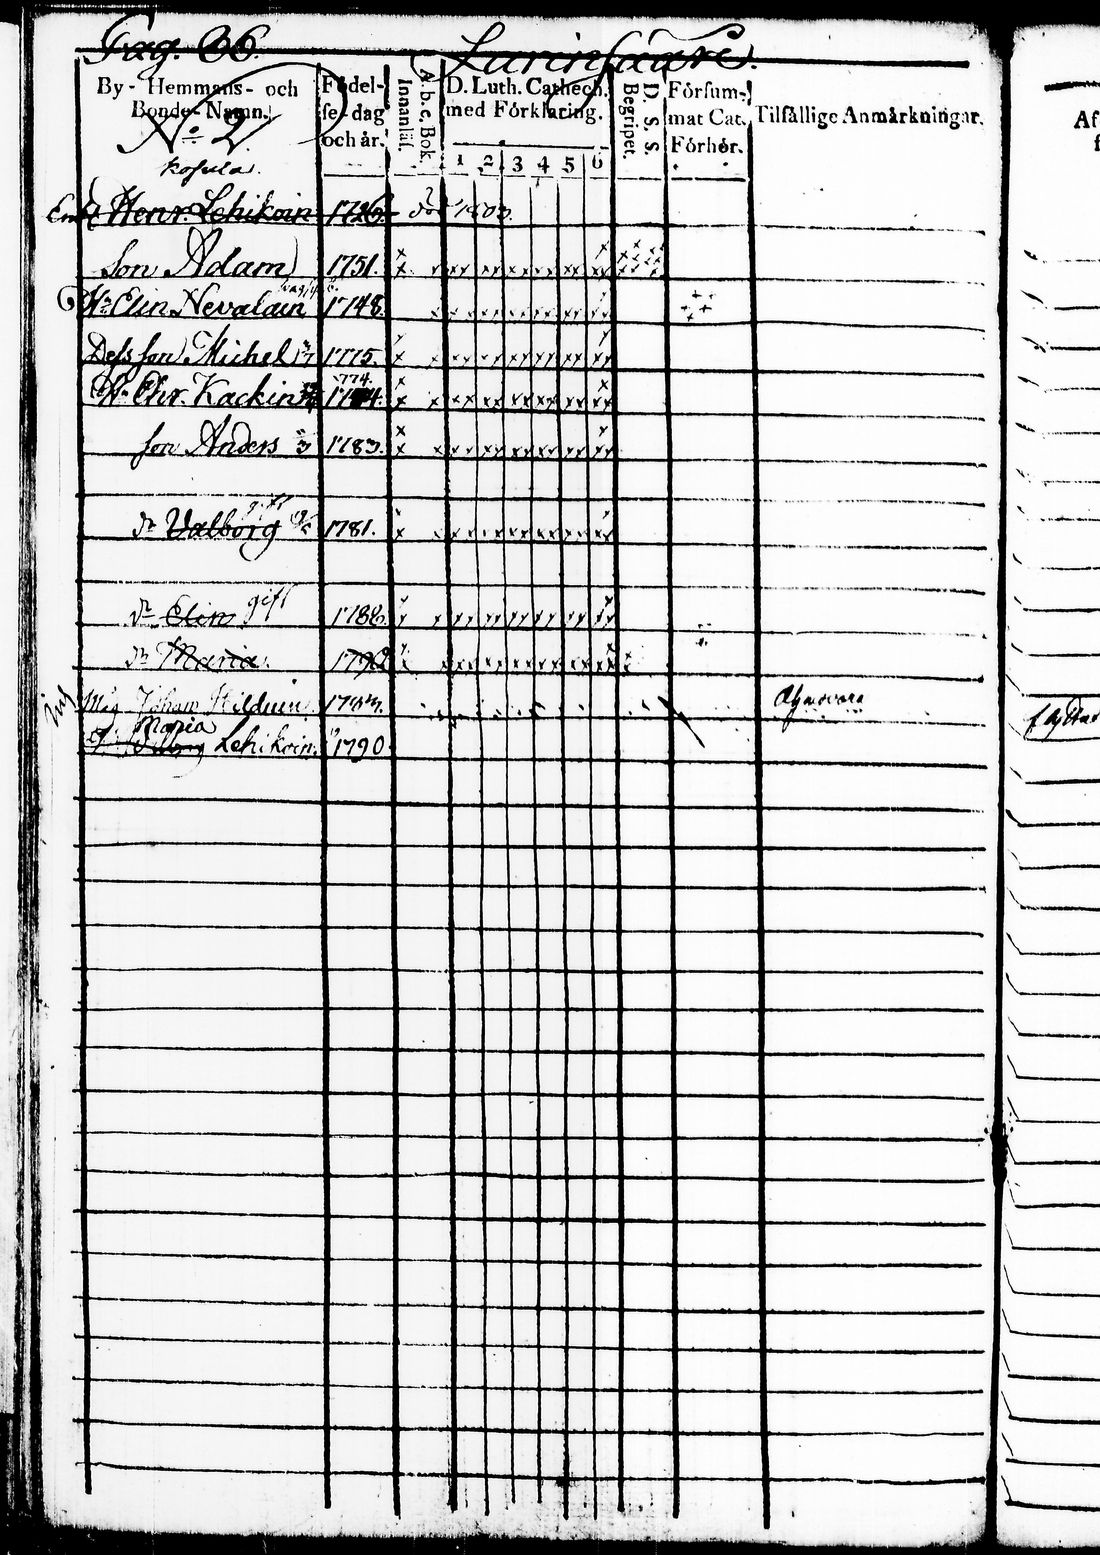 Pag. 66. Lurinsaare.
By- Hemmans- och Bonde-Namn.
Födel-se-dag och år.
Innanläs.
A. b. c. Bok.
D. Luth. Cathech. med Förklaring.
1 2 3 4 5 6
D. S. S. Begripet.
Försum-mat Cat. Förhör.
Tilfällige Anmärkningar.
No 2
Henr. Lehikoin 1726. död 1803.
son Adam 1751.
H. Elin Nevalain 1748.
Dess son Michel 1775.
H. Chr. Kackin 1774.
son Anders 3 1783.
gift
dr Valborg 1781.
dr Elin gift 1786
dr Maria. 1792
Johan
Maria
Lehikoin. 1790
Af